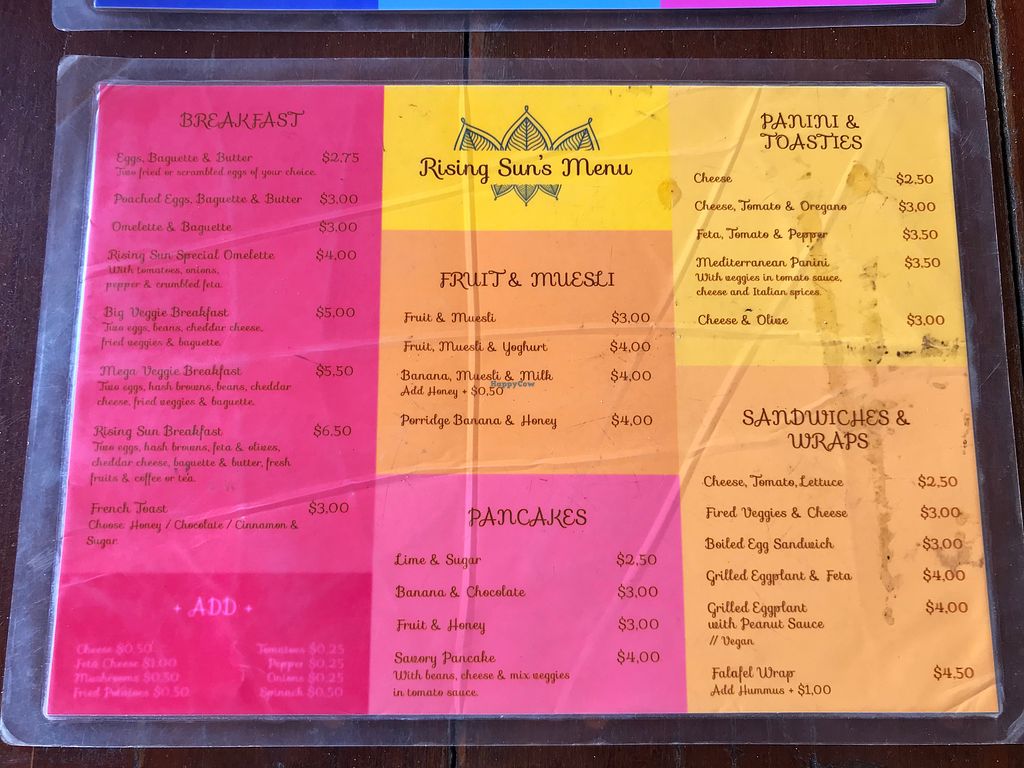 BREAKFAST
Eggs, Baguette & Butter $2.75
Two fried or scrambled eggs of your choice.
Poached Eggs, Baguette & Butter $3.00
Omelette & Baguette $3.00
Rising Sun Special Omelette $4.00
With tomatoes, onions,
pepper & crumbled feta.
Big Veggie Breakfast $5.00
Two eggs, beans, cheddar cheese,
fried veggies & baguette.
Mega Veggie Breakfast $5.50
Two eggs, hash browns, beans, cheddar
cheese, fried veggies & baguette.
Rising Sun Breakfast $6.50
Two eggs, hash browns, feta & olives,
cheddar cheese, baguette & butter, fresh
fruits & coffee or tea.
French Toast $3.00
Choose Honey / Chocolate / Cinnamon &
Sugar.
+ ADD +
Cheese $0.50 Tomatoes $0.25
Feta Cheese $1.00 Pepper $0.25
Mushrooms $0.50 Onions $0.25
Fried Potatoes $0.50 Spinach $0.50
Rising Sun's Menu
FRUIT & MUESLI
Fruit & Muesli $3.00
Fruit, Muesli & Yoghurt $4.00
Banana, Muesli & Milk $4.00
HappyCow
Add Honey + $0.50
Porridge Banana & Honey $4.00
PANCAKES
Lime & Sugar $2.50
Banana & Chocolate $3.00
Fruit & Honey $3.00
Savory Pancake $4.00
With beans, cheese & mix veggies
in tomato sauce.
PANINI &
TOASTIES
Cheese $2.50
Cheese, Tomato & Oregano $3.00
Feta, Tomato & Pepper $3.50
Mediterranean Panini $3.50
With veggies in tomato sauce,
cheese and Italian spices.
Cheese & Olive $3.00
SANDWICHES &
WRAPS
Cheese, Tomato, Lettuce $2.50
Fired Veggies & Cheese $3.00
Boiled Egg Sandwich $3.00
Grilled Eggplant & Feta $4.00
Grilled Eggplant $4.00
with Peanut Sauce
// Vegan
Falafel Wrap $4.50
Add Hummus + $1.00